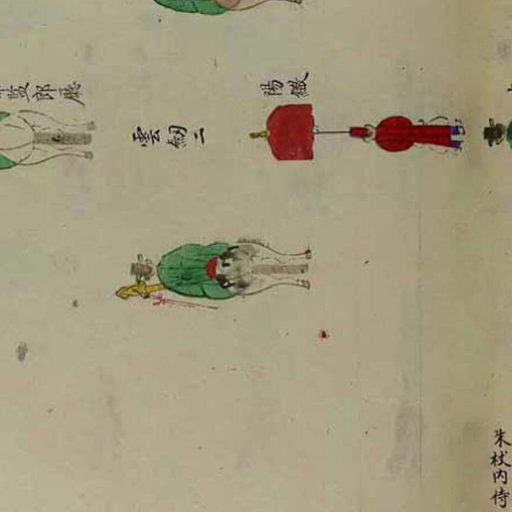 監郎廳
陽繖
雲劒二
朱杖內侍